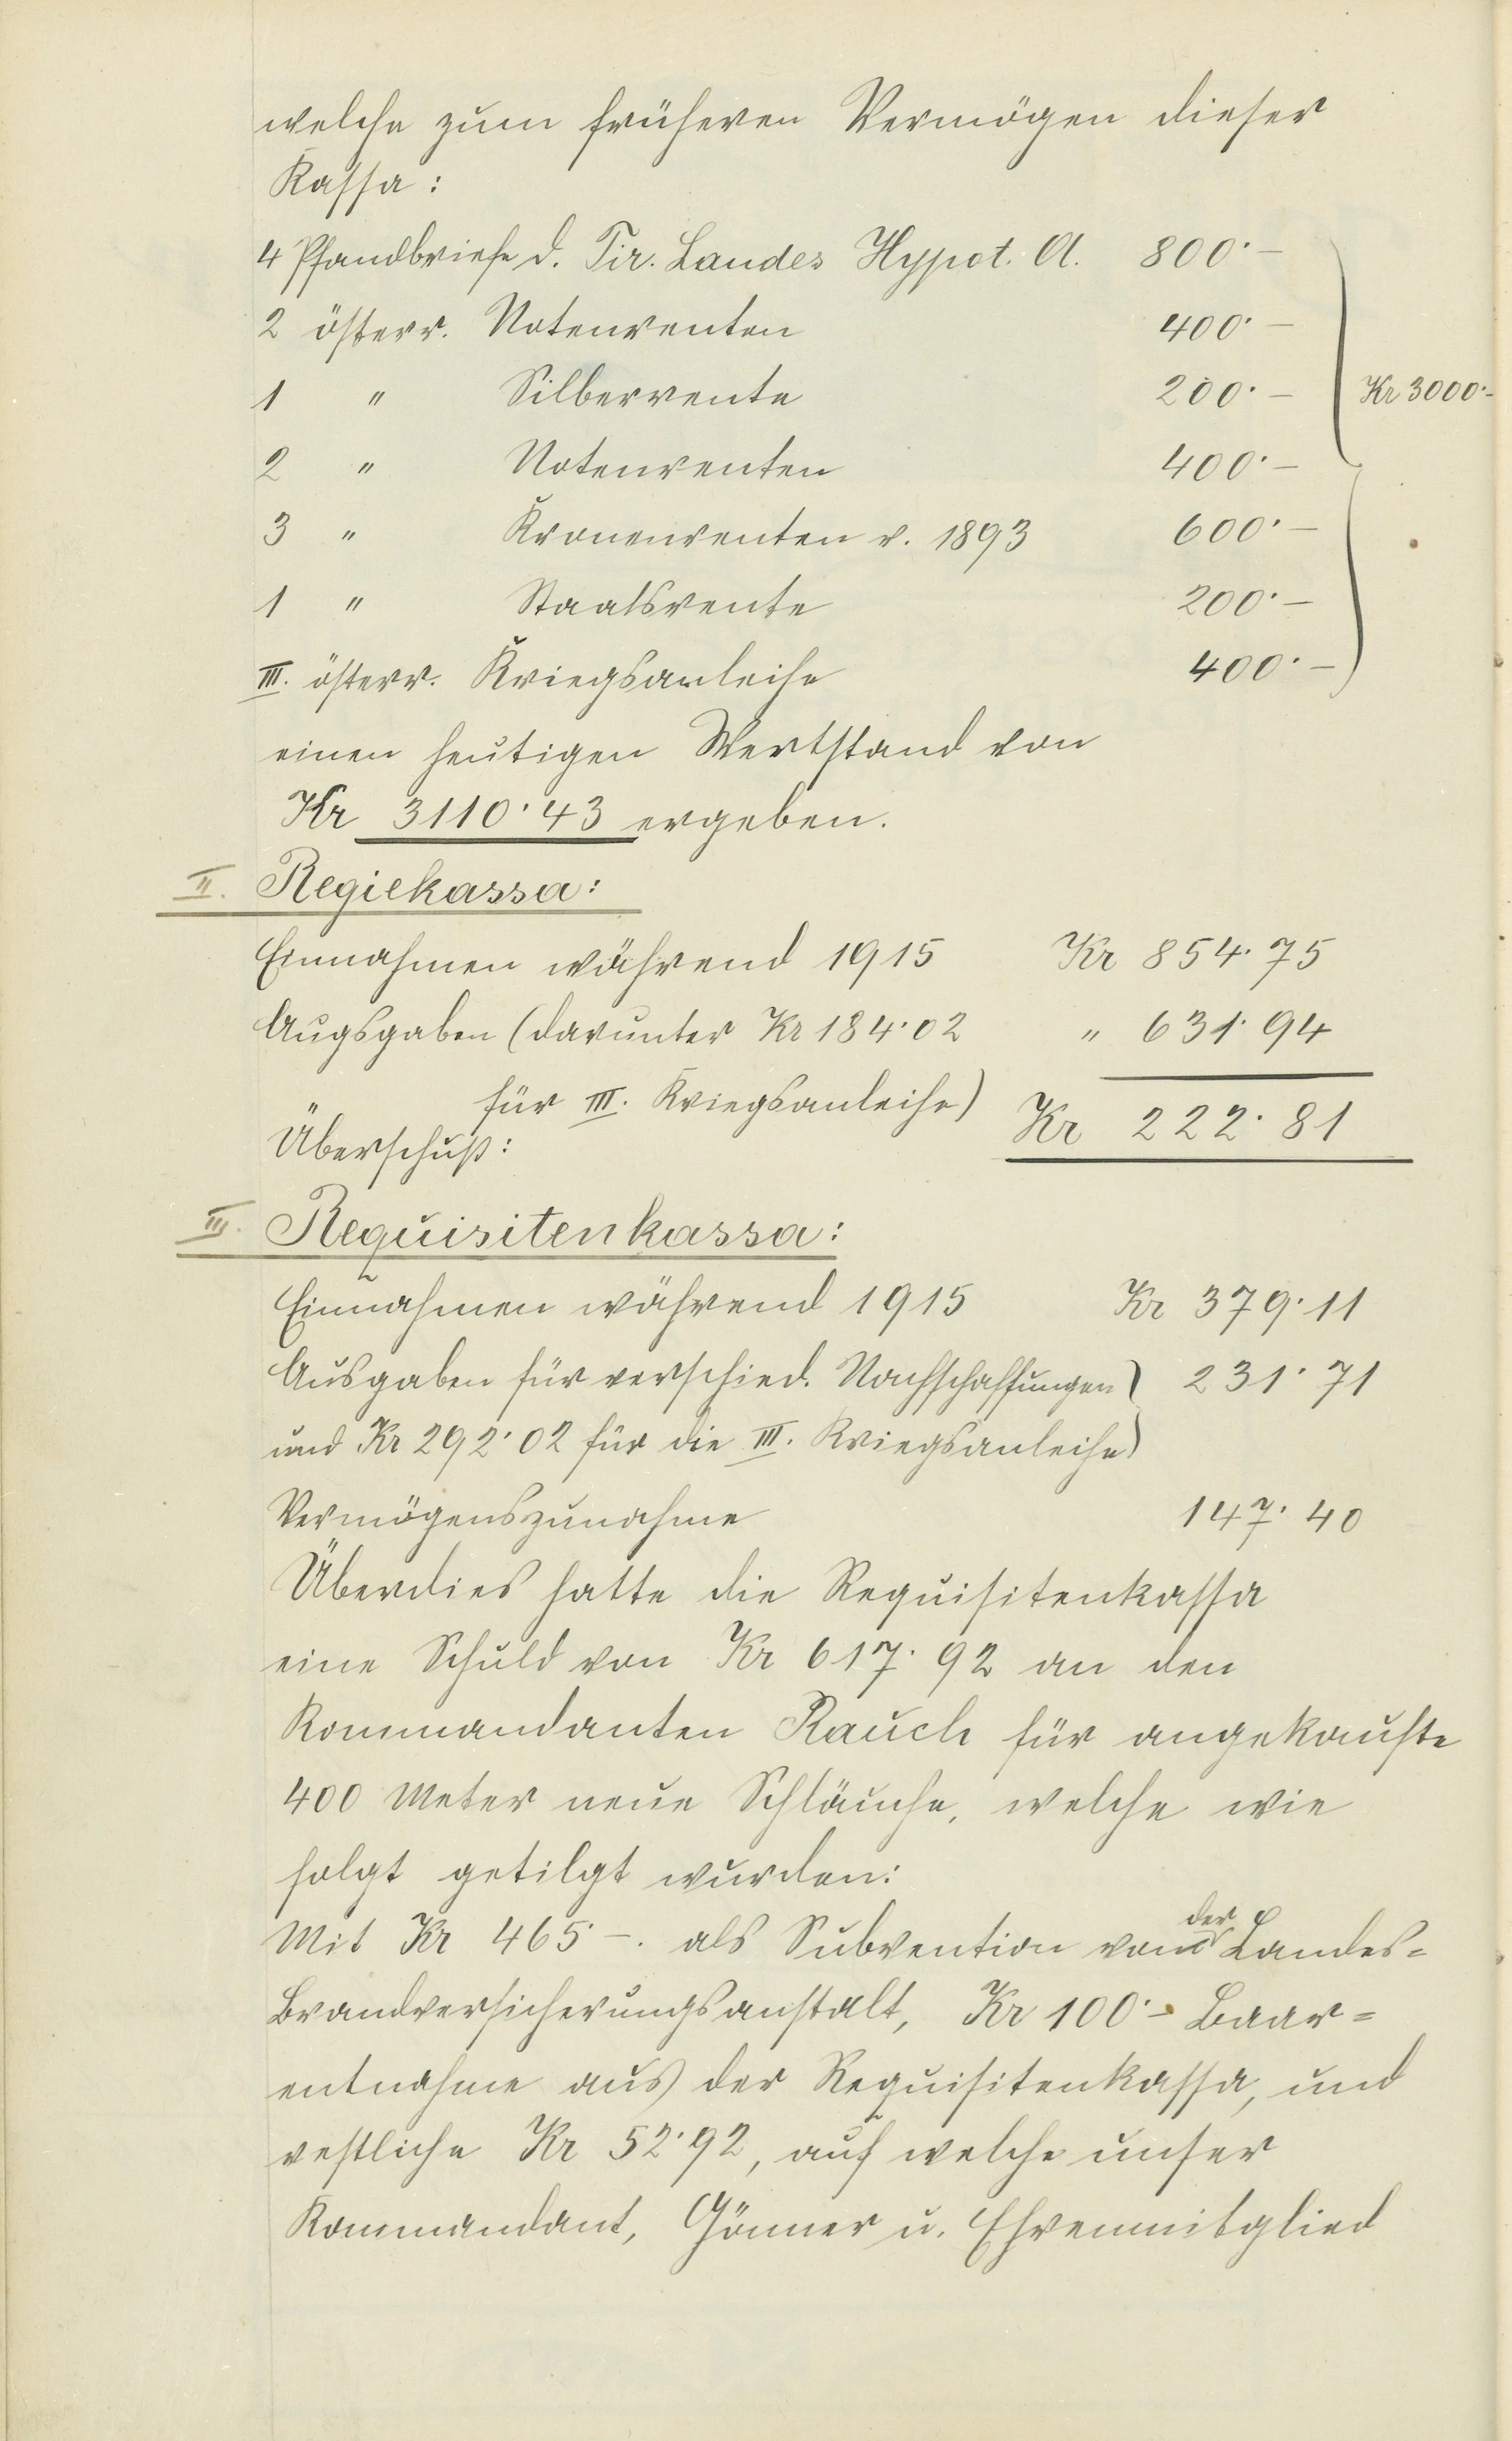 welche zum früheren Vermögen dieser
Kassa:
4 Pfandbriefe d. Tir. Landes Hypot. A. 800·–
2 österr. Notenrenten 400·–
1 " Silberrente 200·– Kr 3000·–
2 " Notenrenten 400·–
3 " Kronenrenten v. 1893 600·–
1 " Staatsrente 200·–
III. österr. Kriegsanleihe 400·–
einen heutigen Wertstand von
Kr 3110·43 ergeben.
II. Regiekassa:
Einnahmen während 1915 Kr 854·75
Augsgaben (darunter Kr 184·02 " 631·94
für III. Kriegsanleihe)
Überschuß: Kr 222·81
III. Requisitenkassa:
Einnahmen während 1915 Kr 379·11
Ausgaben für verschied. Nachschaffungen) 231·71
und Kr 292·02 für die III. Kriegsanleihe)
Vermögenszunahme 147·40
Überdies hatte die Requisitenkassa
eine Schuld von Kr 617·92 an den
Kommandanten Rauch für angekaufte
400 Meter neue Schläuche, welche wie
folgt getilgt wurden:
Mit Kr 465·–. als Subvention von der Landes=
Brandversicherungsanstalt, Kr 100·– Baar=
entnahme aus der Requisitenkassa, und
restliche Kr 52·92, auf welche unser
Kommandant, Gönner u. Ehrenmitglied